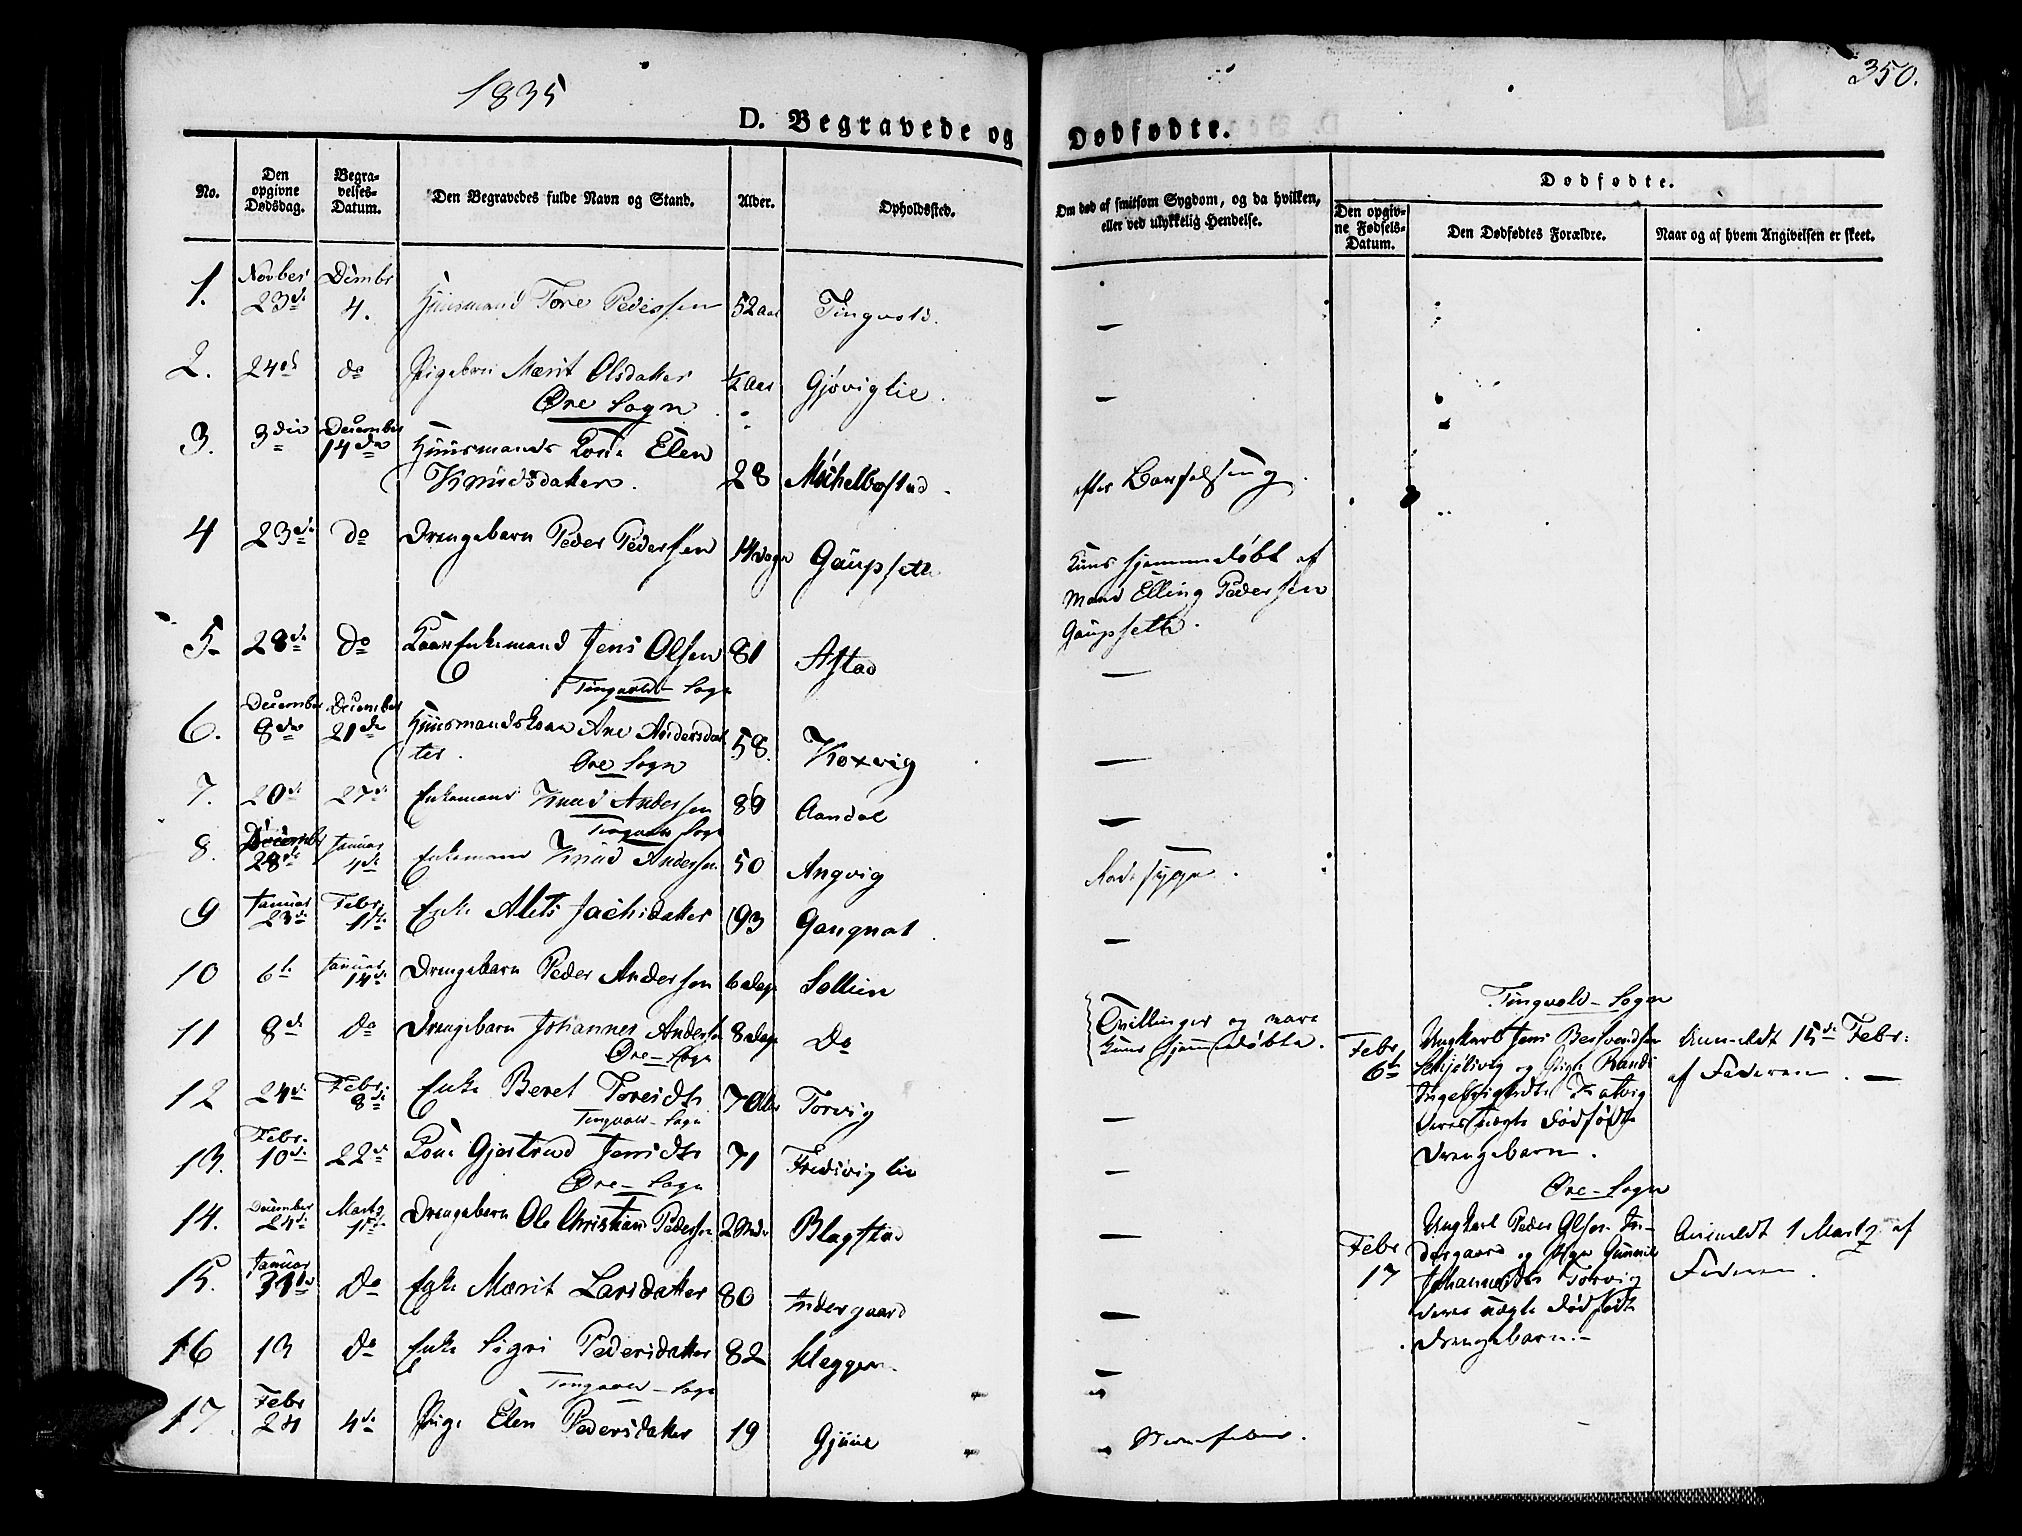 1835
350.
D. Begravede og Dødfødte.
No.
Den opgivne Dødsdag.
Begravelses-Datum.
Den Begravedes fulde Navn og Stand.
Alder.
Opholdssted.
Om død af smitsom Sygdom, og da hvilken, eller ved ulykkelig Hendelse.
Dødfødte.
Den opgivne Fødsels-Datum.
Den Dødfødtes Forældre.
Naar og af hvem Angivelsen er skeet.
1. Novber 23de Decembr 4. Huusmand Tore Pedersen 52 Aar Tingvold. —
2. 24de do Pigebarn Marit Olsdatter ½ Aar Gjøviglie. —
Øre Sogn
3. 3die December 14de Huusmands Kone Elen
Knudsdatter. 28 Michelbostad. efter Barselseng.
4 23de do Drengebarn Peder Pedersen 14 dage Gaupseth
kuns hjemmedøbt af
Mand Elling Pedersen
Gaupseth.
5 28de do Kaarenkemand Jens Olsen 81 Astad —
Tingvold Sogn
6. December 8de December 21de Huusmandskone Ane Andersdatter. 58. Koxvig —
Øre Sogn
7. 20de 27de Enkemand Knud Andersen 89 Aandal —
Tingvold Sogn
8. December 28de Januar 4de Enkemand Knud Andersen 50 Angvig Radesyge.
9 Januar 23de Febr. 1ste Enke Alets 93 —
10 6te Januar 14de Drengebarn Peder Andersen 6 Dage Sollien
11 8de do Drengebarn Johannes Andersen 8 Dage Do
Tvillinger og vare
kuns hjemmedøbte.
Øre Sogn
12 24de Febr. 8de Enke Beret Toresdtr 70 Torvig —
Tingvold Sogn
13. Febr. 10de 22de Kone Gjertrud Jensdtr 71 Fredsviglie —
Øre Sogn
14. December 24de Martz 1ste Drengebarn Ole Christian Pedersen 2 Mdr Blagstad —
15. Januar 31de do Enke Marit Larsdatter 80 Indergaard —
16 13 do Enke Sigri Pedersdatter 82 Kleggen —
Tingvold Sogn
17. Febr 24 4de Pige Elen Pedersdatter 19 Gjuul
Tingvold Sogn
Febr 6te
Ungkarl Jens
og Pige Randi
deres uægte dødfødte
Drengebarn.
Anmeldt 15de Febr.
af Faderen. —
Øre Sogn
Febr 17
Ungkarl Peder Olsen In-
dergaard og Pige Gunnild
Johannesdtr Torvig
deres uægte dødfødte
Drengebarn. —
Anmeldt 1 Martz af
Faderen.